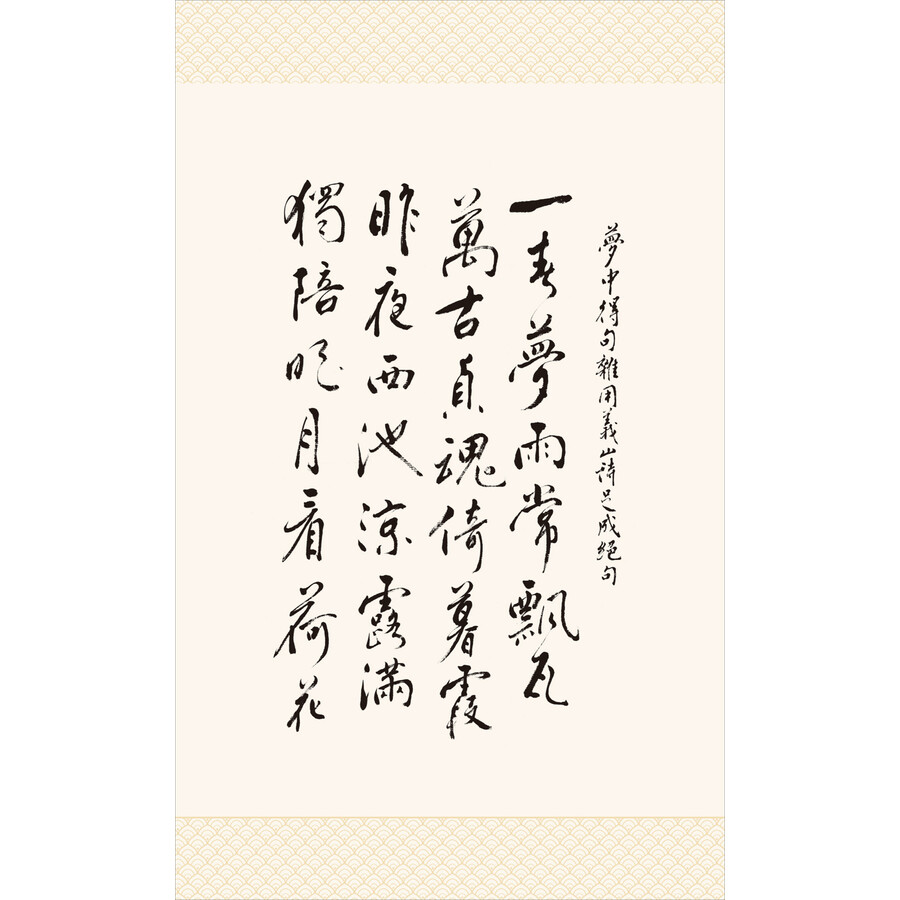 夢中得句雜用義山詩足成絕句
一春夢雨常飄瓦
萬古貞魂倚暮霞
昨夜西池涼露滿
獨陪明月看荷花